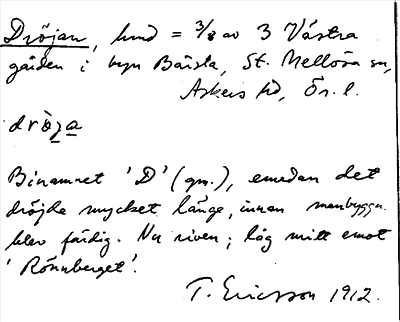 Dröjan, hmd = 3/8 av 3 Västra
gården i byn Bärsta, St. Mellösa sn,
Askers hd, Ör. l.
dròja
Binamnet 'D' (gm.), emedan det
dröjde mycket länge, innan manbyggn.
blev färdig. Nu riven; låg mitt emot
'Rönnberget'.
T. Ericsson 1912.